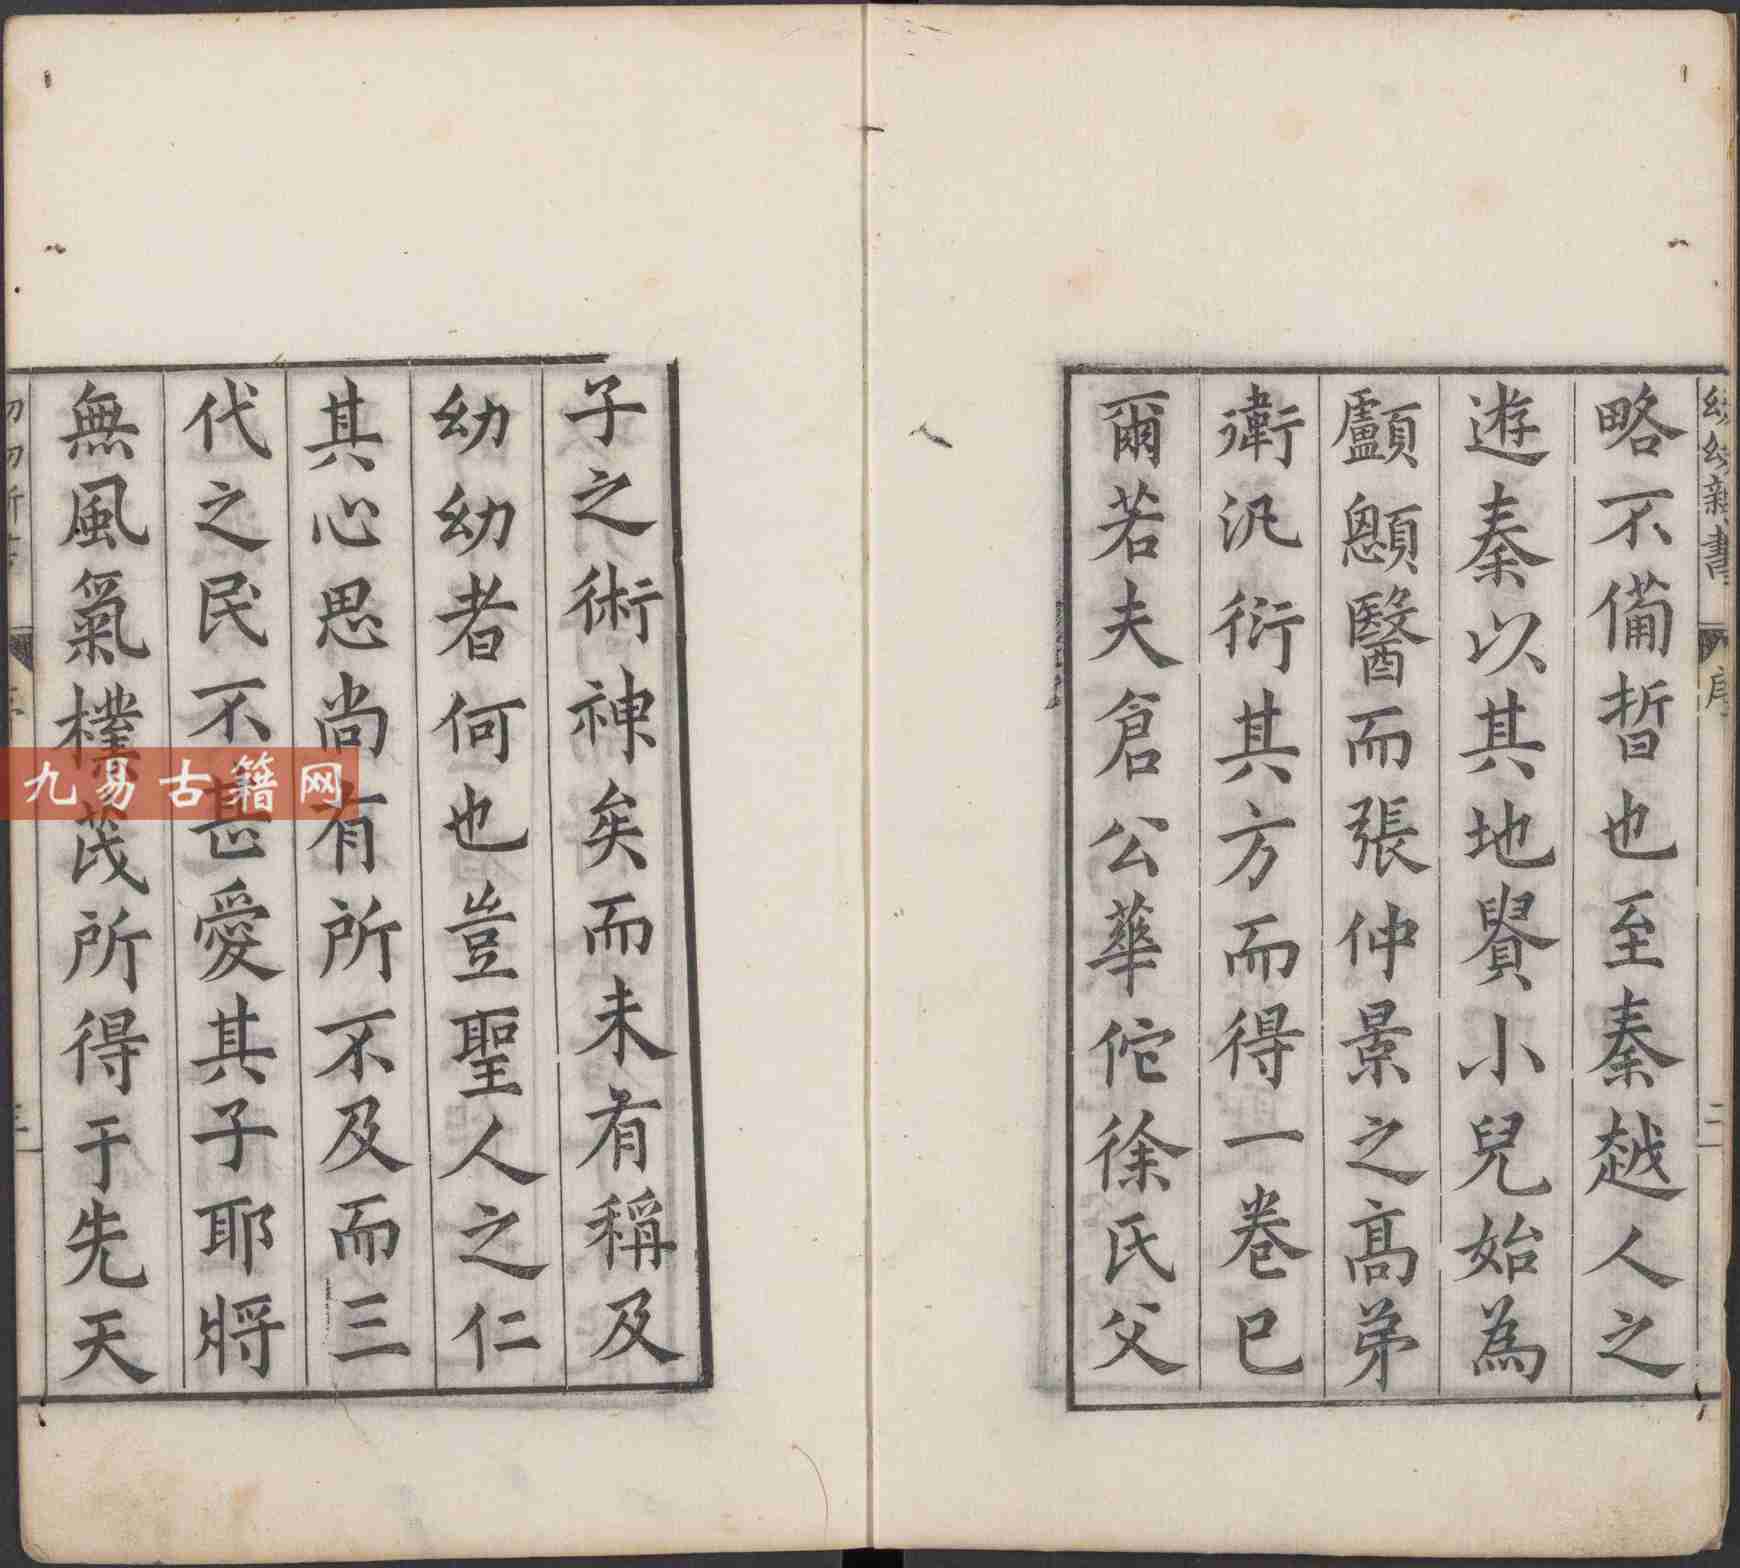 幼幼新書
序
二
略不備晳也至秦越人之
遊秦以其地賢小兒始為
顱顖醫而張仲景之高弟
衛汎衍其方而得一卷已
爾若夫倉公華佗徐氏父
子之術神矣而未有稱及
幼幼者何也豈聖人之仁
其心思尚有所不及而三
代之民不甚愛其子耶將
無風氣樸茂所得于先天
九易古籍网